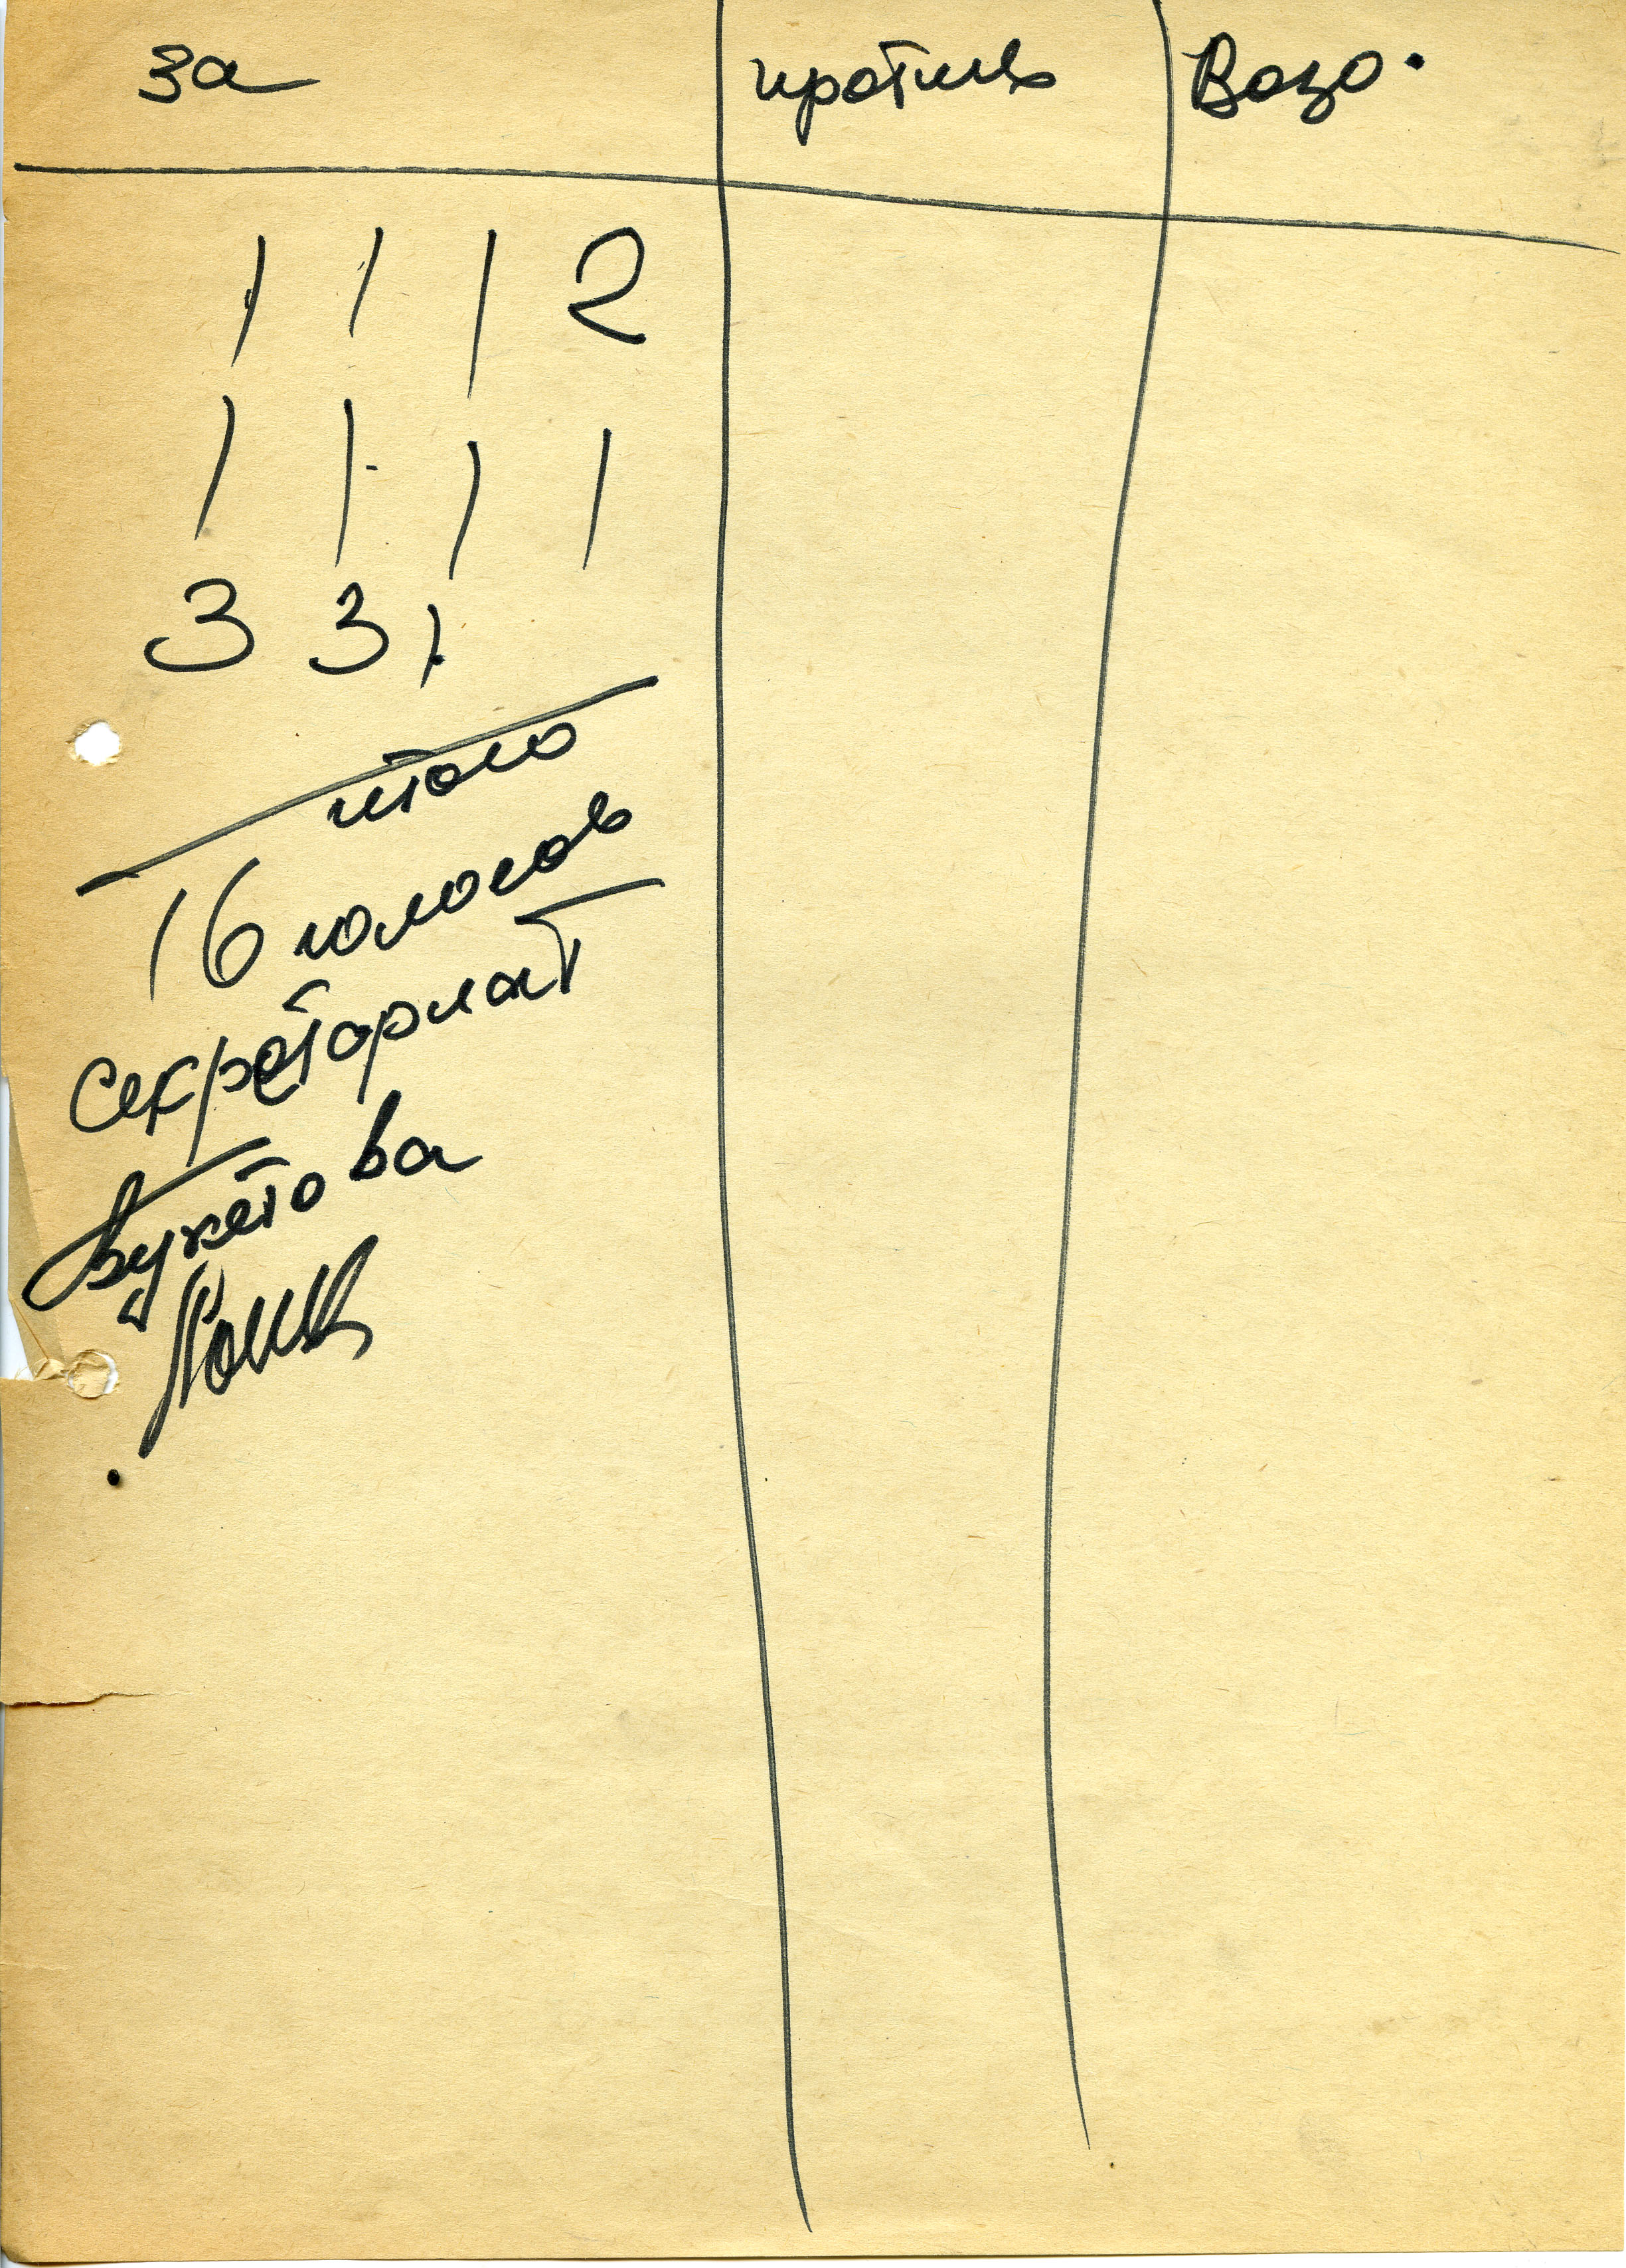 за против Возд.
1 1 1 2
1 1 1 1
3 3 1
итого
16 голосов
Секретариат
Букетова